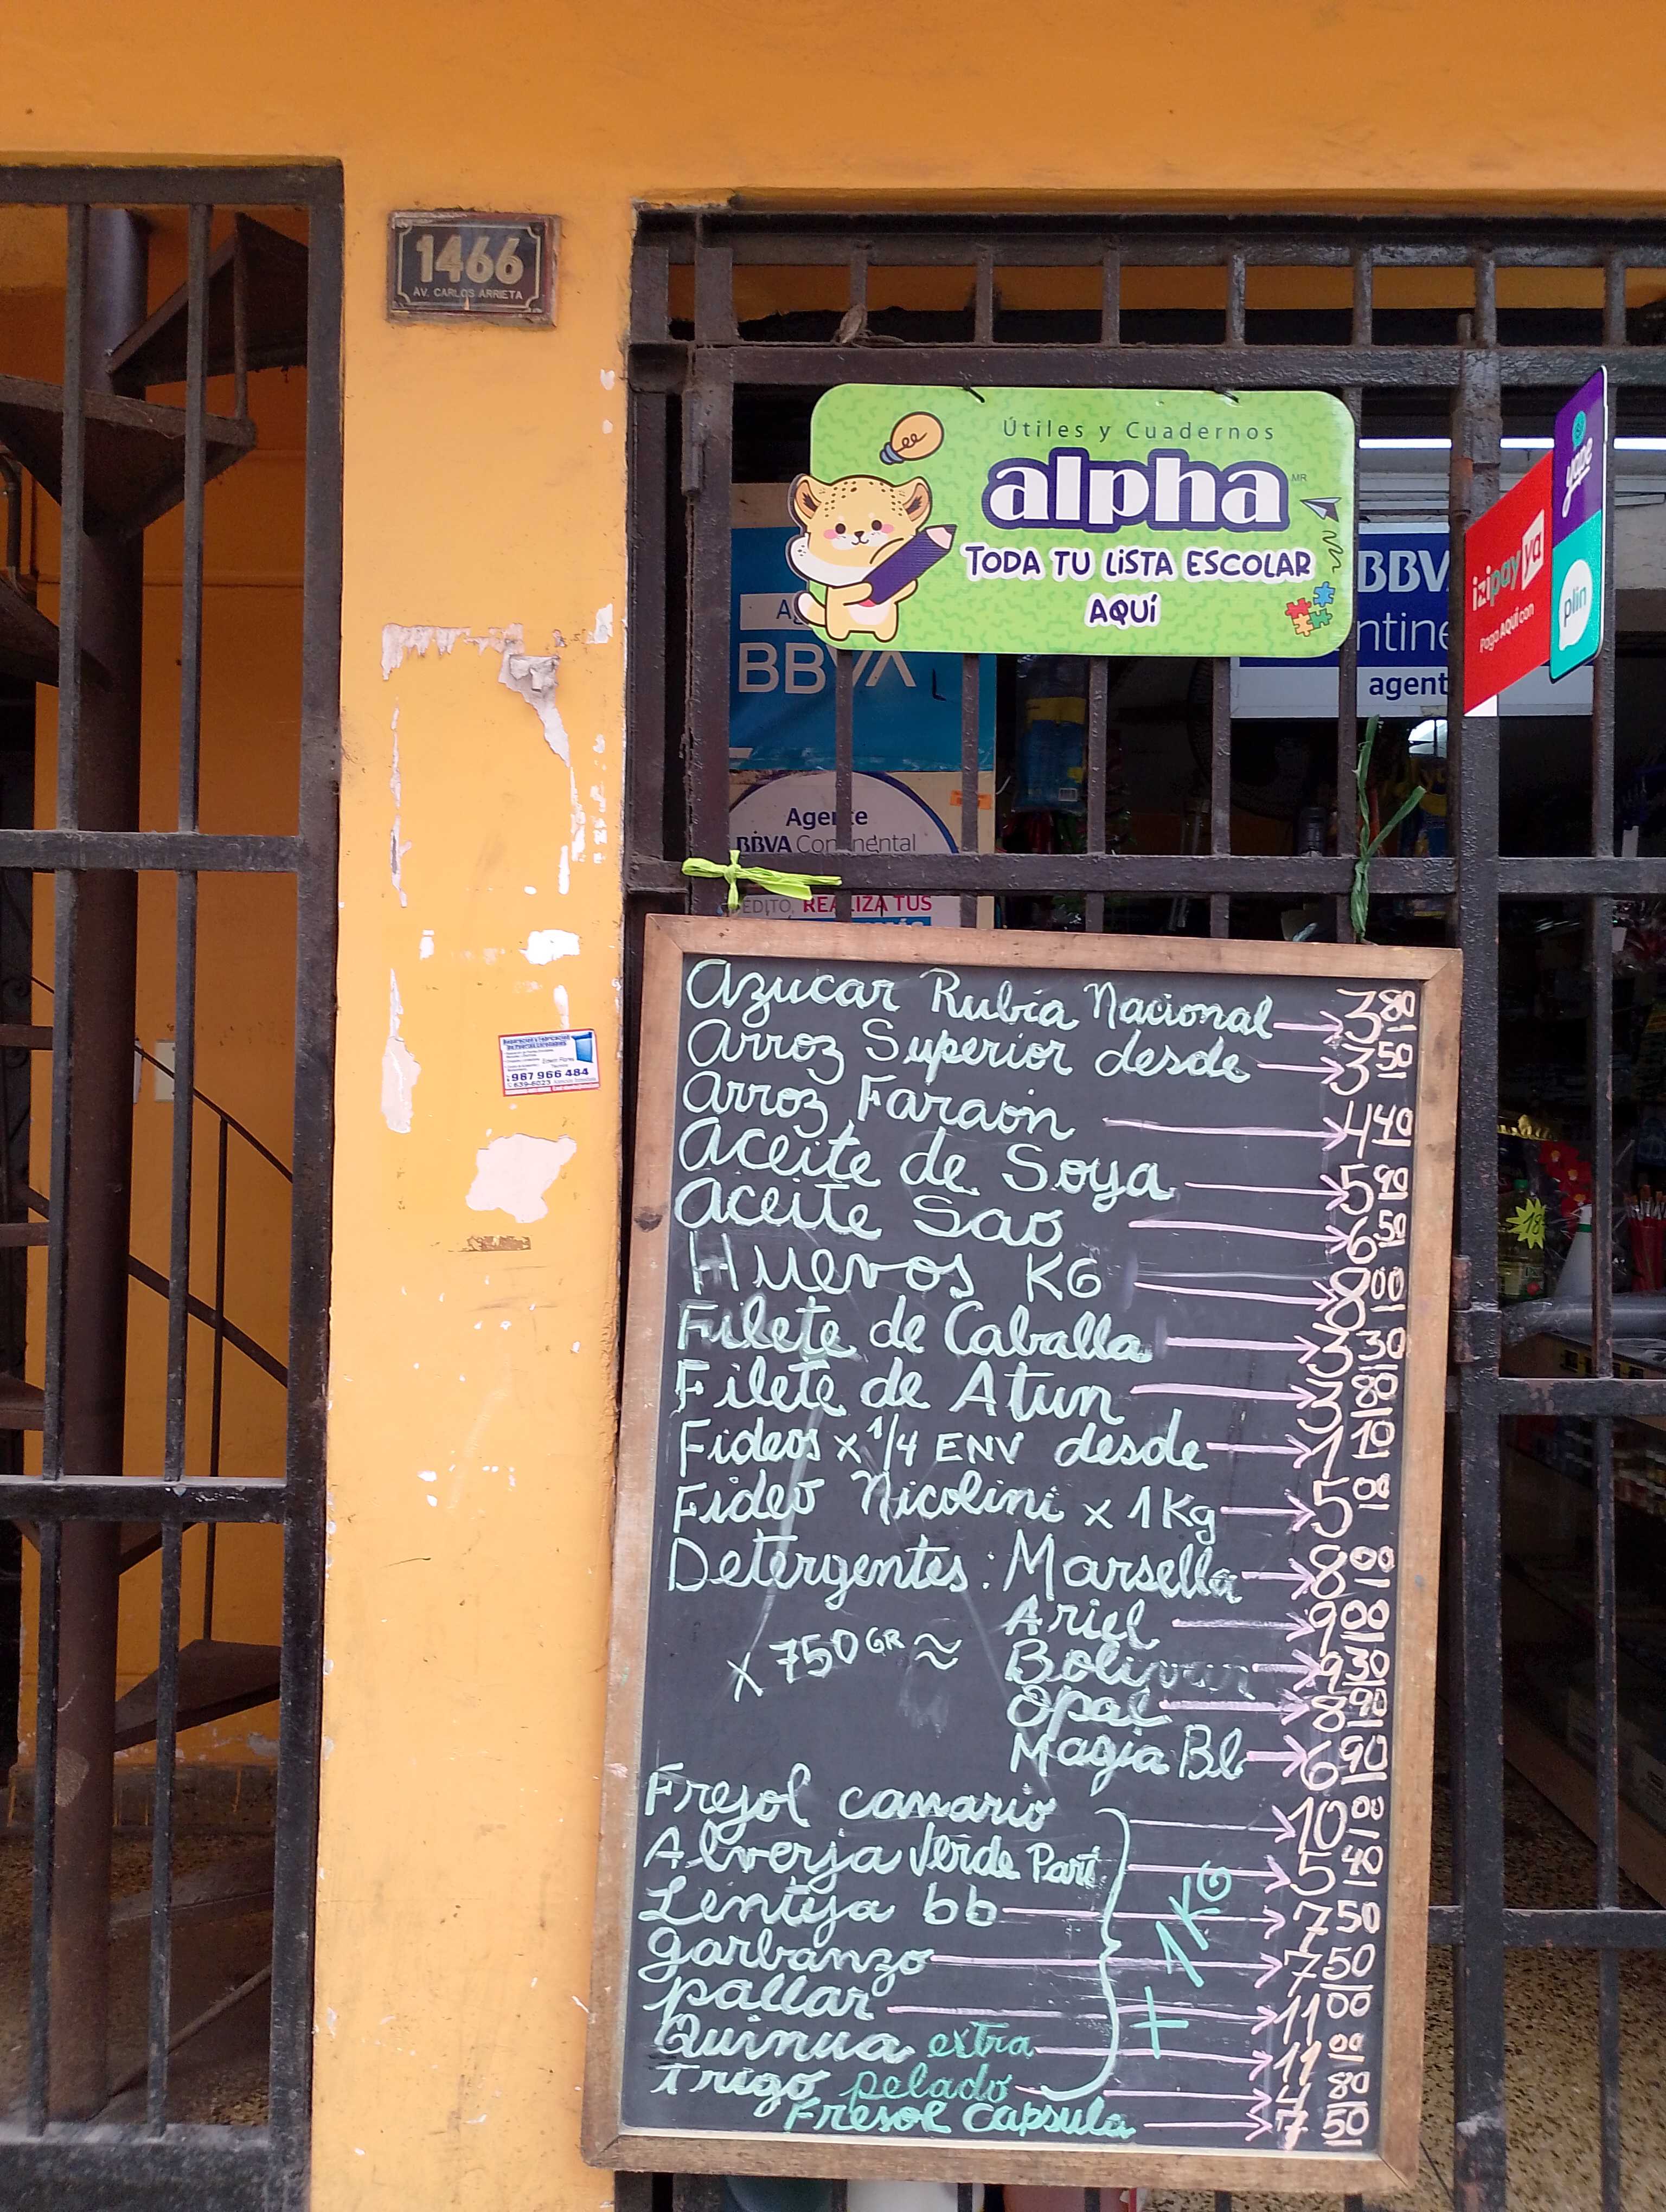 1466
AV. CARLOS ARRIETA
Útiles y Cuadernos
alpha MR
TODA TU LiSTA ESCOLAR
AQUÍ
yape
izipay ya
Paga AQUÍ con
plin
BBVA
BBV
agent
Agente
BBVA Continental
REALIZA TUS
987 966 484
639-6023
18
Azucar Rubia Nacional → 3 80
Arroz Superior desde → 3 50
Arroz Faraón → 4 40
Aceite de Soya → 5 90
Aceite Sao → 6 50
Huevos KG → 8 00
Filete de Caballa → 3 30
Filete de Atun → 3 80
Fideos x 1/4 ENV desde → 1 10
Fideo Nicolini x 1Kg → 5 00
Detergentes: Marsella → 8 00
Ariel → 9 00
x 750 GR ≈ Bolivar → 9 30
Opal → 8 90
Magia Bl → 6 90
Frejol canario → 10 00
Alverja Verde Part. → 5 40
Lenteja bb → 7 50
Garbanzo → 7 50
pallar → 11 00
Quinua extra → 11 00
Trigo pelado → 4 80
Fresol Capsula → 7 50
x 1KG